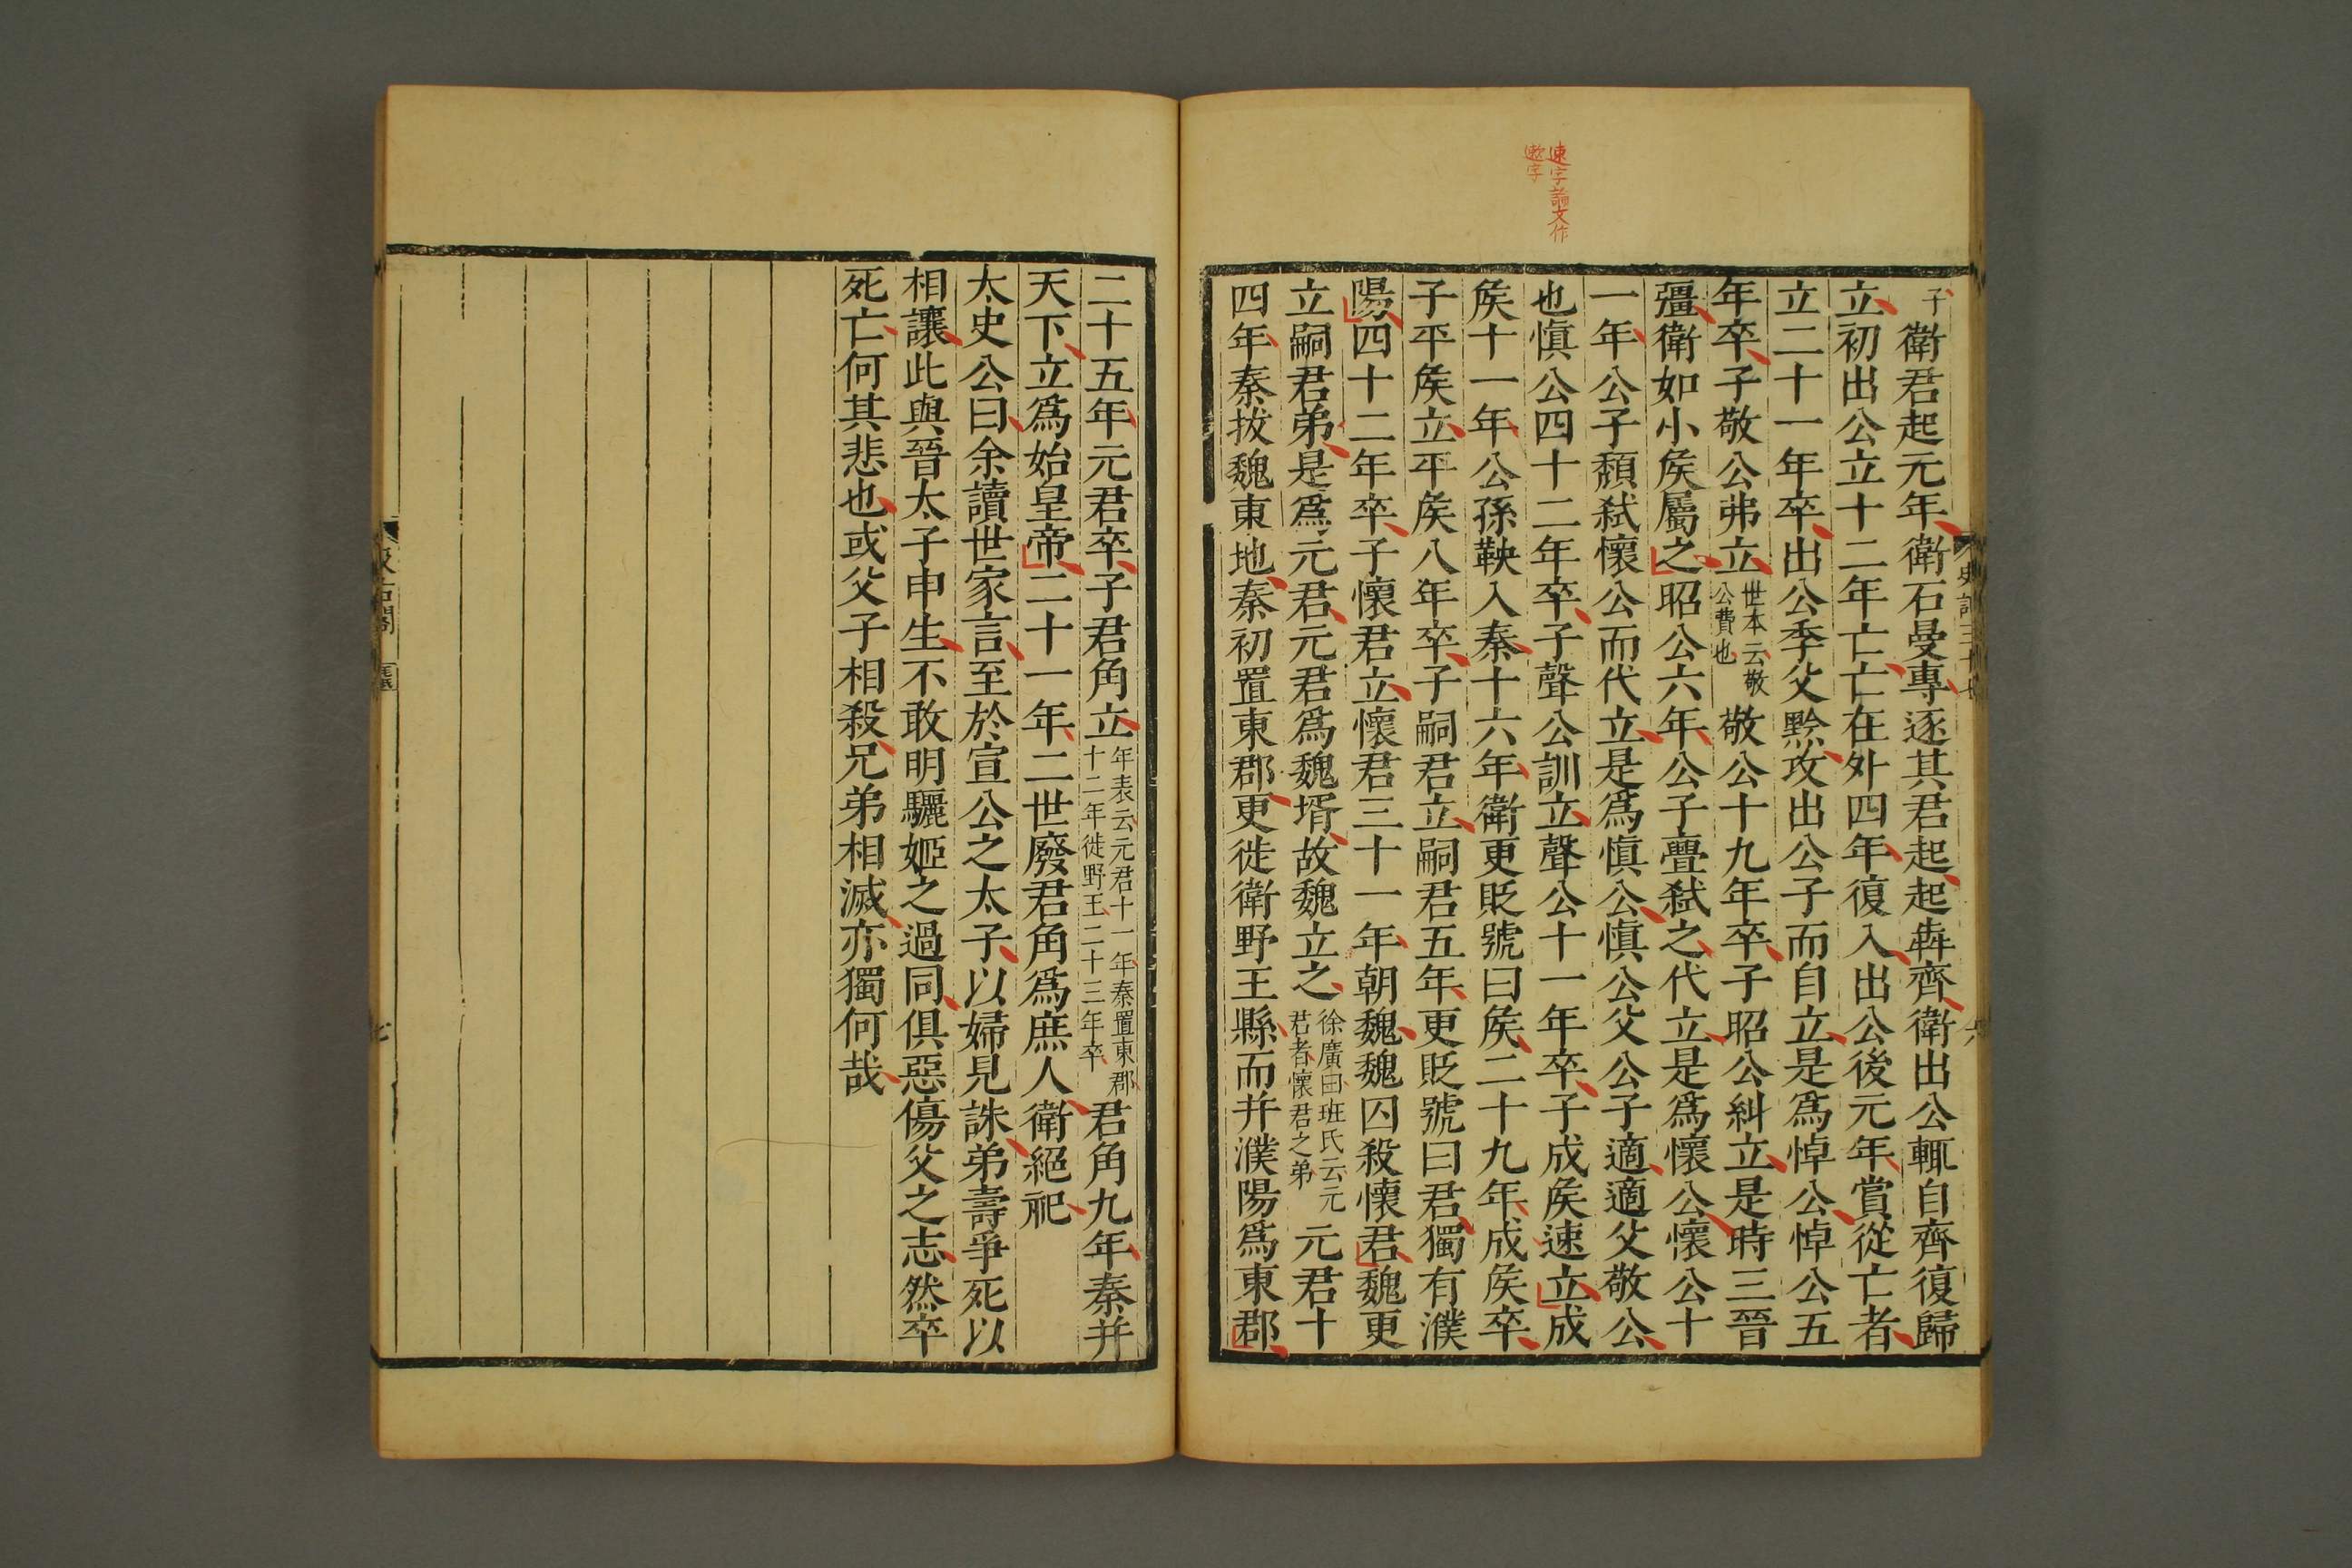 速字説文作
遬字
子衛君起元年衛石曼專逐其君起起犇齊衛出公輒自齊復歸
立初出公立十二年亡亡在外四年復入出公後元年賞從亡者
立二十一年卒出公季父黔攻出公子而自立是爲悼公悼公五
年卒子敬公弗立世本云敬公費也敬公十九年卒子昭公糾立是時三晉
彊衛如小矦屬之昭公六年公子亹弑之代立是爲懷公懷公十
一年公子頽弑懷公而代立是爲慎公慎公父公子適適父敬公
也慎公四十二年卒子聲公訓立聲公十一年卒子成矦速立成
矦十一年公孫鞅入秦十六年衛更貶號曰矦二十九年成矦卒
子平矦立平矦八年卒子嗣君立嗣君五年更貶號曰君獨有濮
陽四十二年卒子懷君立懷君三十一年朝魏魏囚殺懷君魏更
立嗣君弟是爲元君元君爲魏壻故魏立之徐廣曰班氏云元君者懷君之弟元君十
四年秦拔魏東地秦初置東郡更徙衛野王縣而并濮陽爲東郡
二十五年元君卒子君角立年表云元君十一年秦置東郡十二年徙野王二十三年卒君角九年秦并
天下立爲始皇帝二十一年二世廢君角爲庶人衛絕祀
太史公曰余讀世家言至於宣公之太子以婦見誅弟壽爭死以
相讓此與晉太子申生不敢明驪姬之過同俱惡傷父之志然卒
死亡何其悲也或父子相殺兄弟相滅亦獨何哉
七